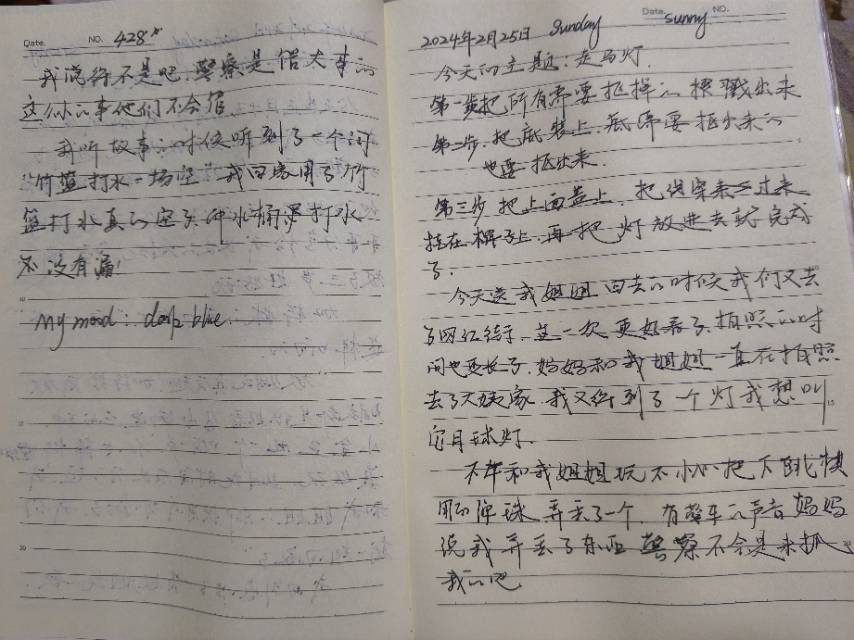 Date. NO. 428*
我觉得不是吧,警察是偕大事的
这么小的事他们不会管
我听故事的时候听到了一个词
"竹篮打水一场空"我回家用了竹
篮打水真的空了,用水桶打水
都没有漏!
My mood: dark blue.
Date. sunny NO.
2024年2月25日 Sunday
今天的主题:走马灯.
第一步把所有需要抠掉的模戳出来
第二步,把底装上,底需要抠出来的
也要抠出来.
第三步把上面盖上,把线穿过来
挂在棍子上,再把灯放进去就完成
了.
今天送我姐姐回去的时候我们又去
了网红街,这一次更好看了,拍照的时
间也更长了,妈妈和我姐姐一直在拍照
去了大姨家,我又得到了一个灯我想叫
它月球灯.
下午和我姐姐玩不小心把下跳棋
用的弹珠弄丢了一个,有警车的声音妈妈
说我弄丢了东西警察不会是来抓
我的吧